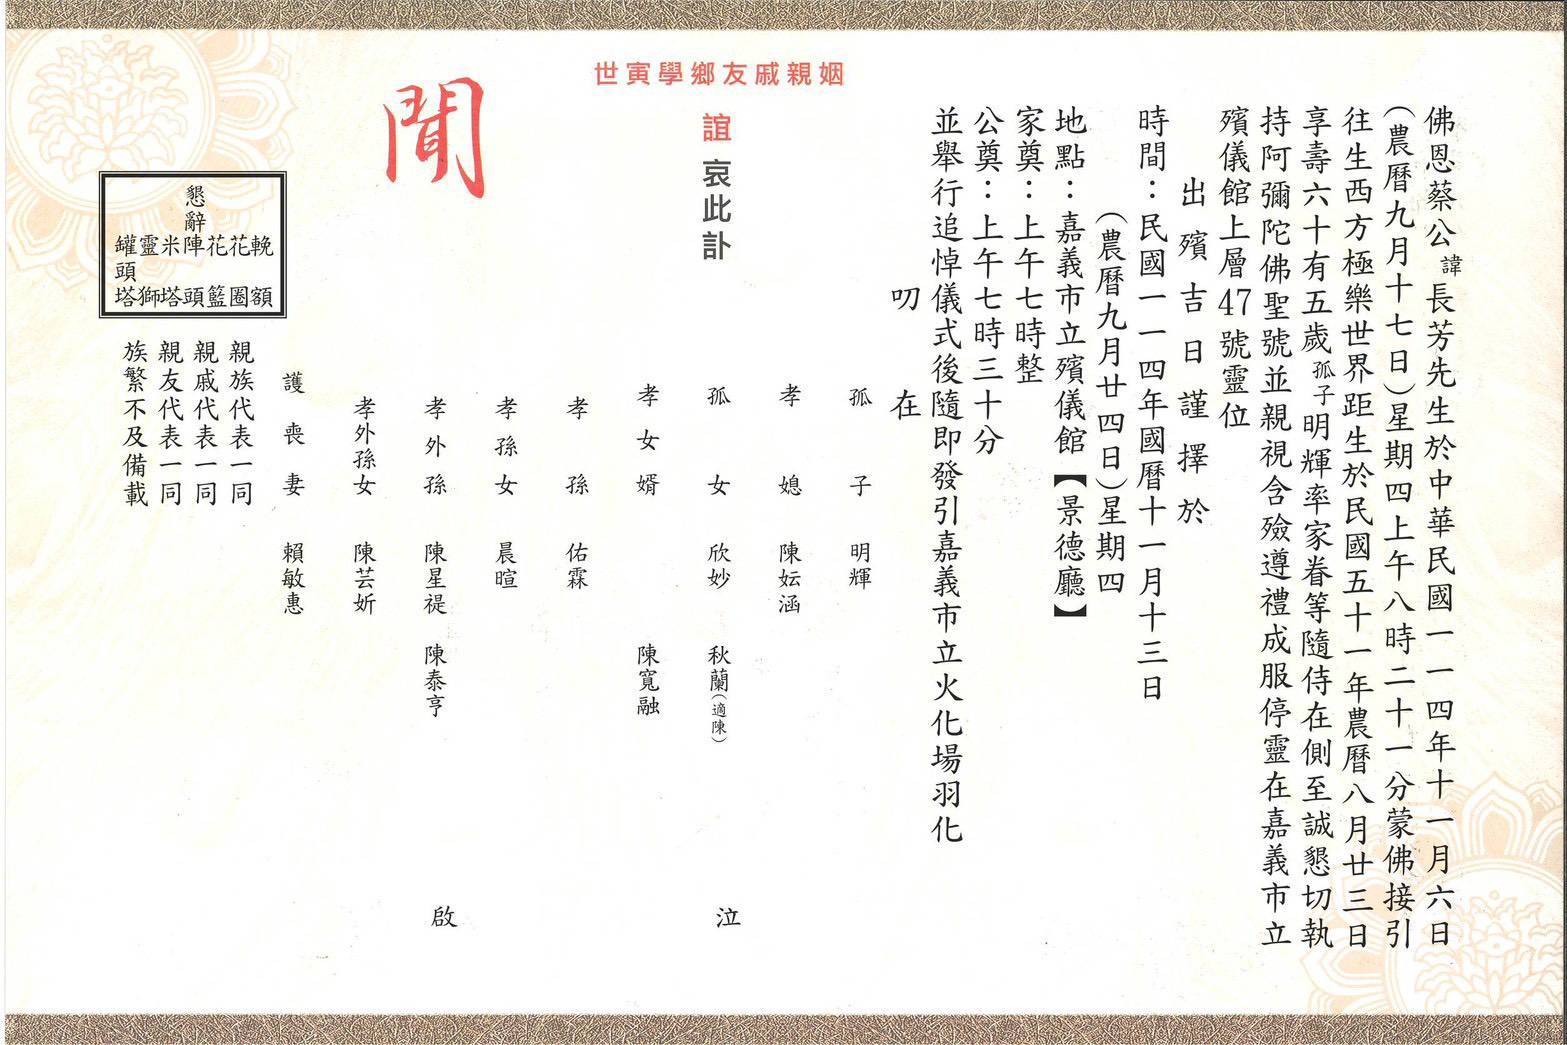 佛恩蔡公諱長芳先生於中華民國一一四年十一月六日
(農曆九月十七日)星期四上午八時二十一分蒙佛接引
往生西方極樂世界距生於民國五十一年農曆八月廿三日
享壽六十有五歲孤子明輝率家眷等隨侍在側至誠懇切執
持阿彌陀佛聖號並親視含殮遵禮成服停靈在嘉義市立
殯儀館上層47號靈位
出殯吉日謹擇於
時間：民國一一四年國曆十一月十三日
(農曆九月廿四日)星期四
地點：嘉義市立殯儀館【景德廳】
家奠：上午七時整
公奠：上午七時三十分
並舉行追悼儀式後隨即發引嘉義市立火化場羽化
叨在
姻親戚友鄉學寅世
誼哀此訃
聞
孤子 明輝
孝媳 陳妘涵
孤女 欣妙 秋蘭(適陳)
孝女婿 陳寬融
孝孫 佑霖
孝孫女 晨暄
孝外孫 陳星禔 陳泰亨
孝外孫女 陳芸妡
護喪妻 賴敏惠
泣
啟
親族代表一同
親戚代表一同
親友代表一同
族繁不及備載
懇辭
輓額
花圈
花籃
陣頭
米塔
靈獅
罐頭塔